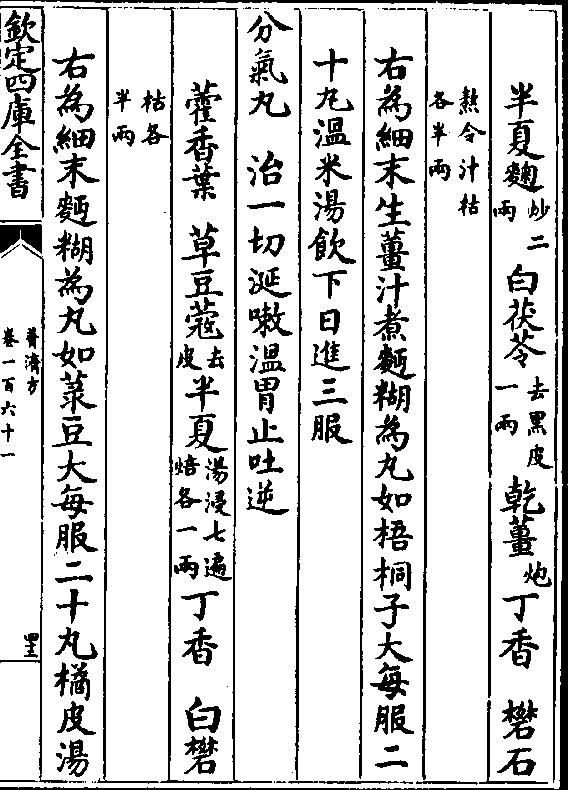 半夏麯炒二兩 白茯苓去黑皮一兩 乾薑炮 丁香 礬石
熬令汁枯各半兩
右為細末生薑汁煮麪糊為丸如梧桐子大每服二
十丸温米湯飲下日進三服
分氣丸 治一切涎嗽溫胃止吐逆
藿香葉 草豆蔻去皮 半夏湯浸七遍焙各一兩 丁香 白礬
枯各半兩
右為細末麪糊為丸如菉豆大每服二十丸橘皮湯
欽定四庫全書
普濟方
卷一百六十一